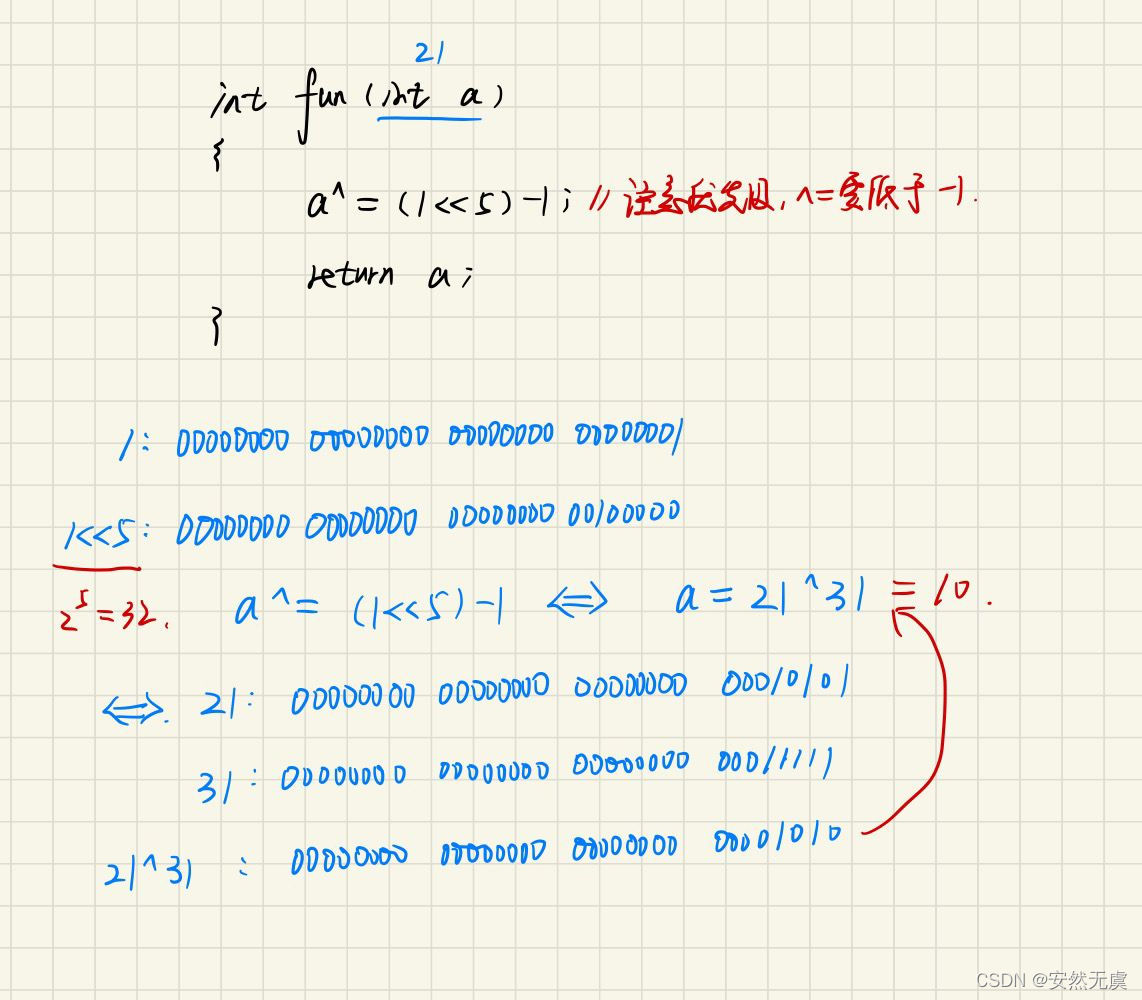 21
int fun (int a)
{
a^= (1<<5)-1; // 注意优先级, ^=要低于 -1.
return a;
}
1: 00000000 00000000 00000000 00000001
1<<5: 00000000 00000000 00000000 00100000
2^5=32. a^= (1<<5)-1 <=> a = 21^31 = 10.
<=>. 21: 00000000 00000000 00000000 00010101
31: 00000000 00000000 00000000 00011111
21^31 : 00000000 00000000 00000000 00001010
CSDN @安然无虞